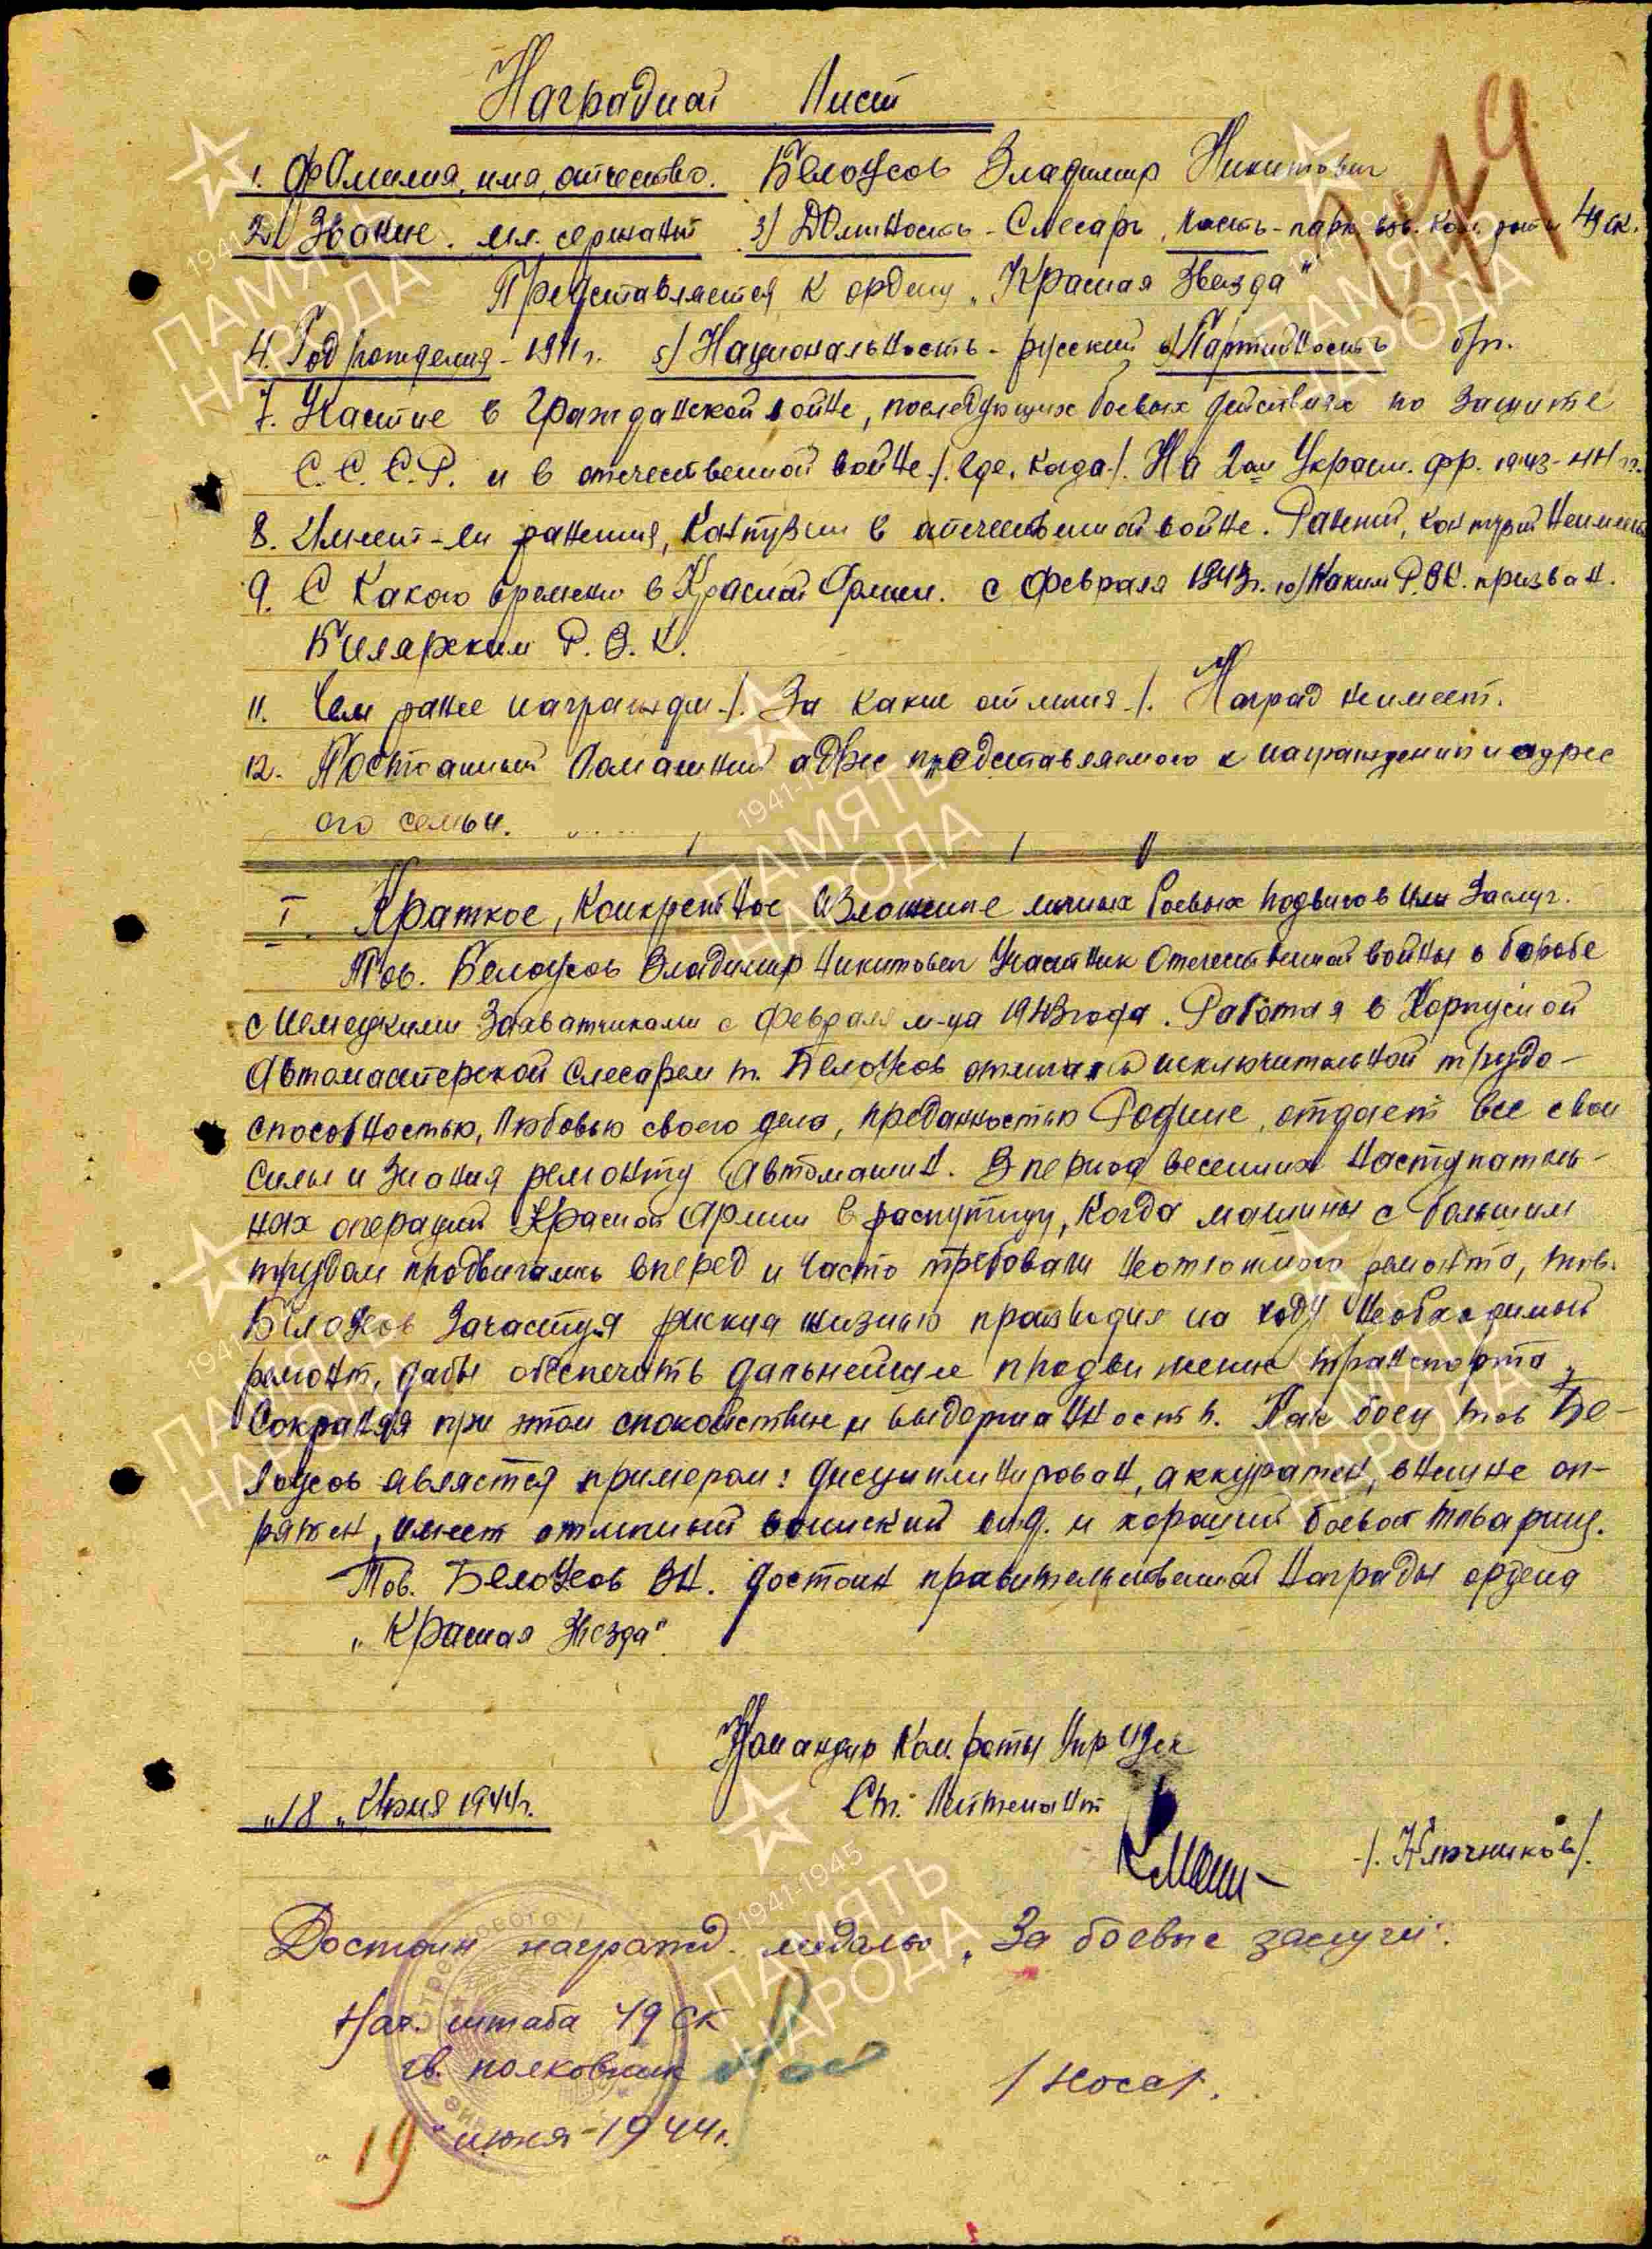 Наградной Лист
1. Фамилия, имя, отчество. Белоусов Владимир Никитович
2) Звание. мл. сержант 3) Должность - Слесарь, Часть - парк ком. роты 49 ск.
Представляется к ордену „Красная Звезда"
4. Год рождения - 1911 г. 5) Национальность - русский 6) Партийность б/п.
7. Участие в Гражданской войне, последующих боевых действиях по защите
С.С.С.Р. и в отечественной войне /. где, когда /. На 2ом Украин. фр. 1943-44 гг.
8. Имеет-ли ранения, контузии в отечественной войне. Ранений, контузий неимеет
9. С какого времени в Красной Армии. с февраля 1943 г. 10) Каким Р.В.К. призван.
Билярским Р.В.К.
11. Чем ранее награжден /. За какие отличия /. Наград неимеет.
12. Постоянный домашний адрес представляемого к награждению и адрес
его семьи.
I. Краткое, конкретное изложение личных боевых подвигов или заслуг.
Тов. Белоусов Владимир Никитович участник Отечественной войны в борьбе
с немецкими захватчиками с февраля м-ца 1943 года. Работая в Корпусной
Автомастерской слесарем т. Белоусов отличался исключительной трудо-
способностью, любовью своего дела, преданностью Родине, отдает все свои
силы и знания ремонту автомашин. В период весенних наступатель-
ных операций Красной Армии в распутицу, когда машины с большим
трудом продвигались вперед и часто требовали неотложного ремонта, тов.
Белоусов зачастую рискуя жизнью производил на ходу необходимый
ремонт, дабы обеспечить дальнейшее продвижение транспорта,
сохраняя при этом спокойствие и выдержанность. Как боец тов Бе-
лоусов является примером: дисциплинирован, аккуратен, внешне оп-
рятен, имеет отличный воинский вид. и хороший боевой товарищ.
Тов. Белоусов ВН. достоин правительственной награды ордена
„Красная Звезда"
Командир Ком. роты Упр 49 ск
Ст. Лейтенант
/. Ключников /.
„18„ Июня 1944 г.
Достоин награжд. медалью „За боевые заслуги".
Нач. штаба 49 СК
гв. полковник
/ Носа /.
„19" июня - 1944 г.
179
стрелкового
1941-1945
ПАМЯТЬ
НАРОДА